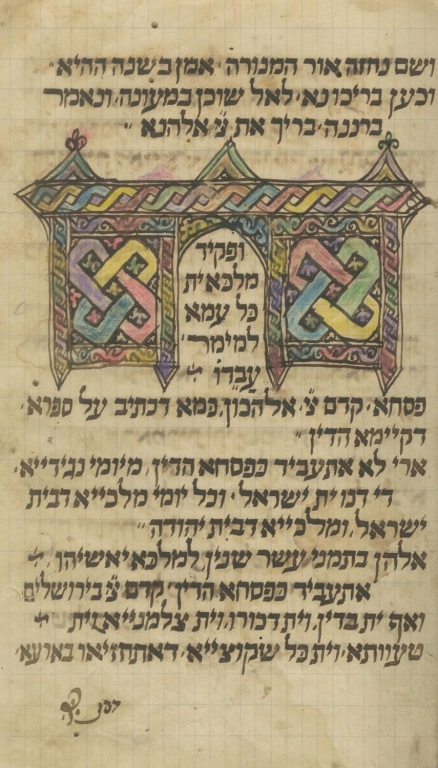 ושם נחזה אור המנורה · אמן בשנה ההיא ״
וכען בריכו נא · לאל שוכן במעונה · ונאמר
ברננה · בריך את צ̈ אלהנא ״
ופקיד
מלכא ית
כל עמא
למימר ·
עבדו
פסחא · קדם צ̈ · אלהכון, כמא דכתיב על ספרא ·
דקיימא הדין ״
ארי לא אתעביד כפסחא הדין, מיומי נגידייא ·
די דנו ית ישראל · וכל יומי מלכייא דבית
ישראל, ומלכייא דבית יהודה ״
אלהן בתמני עשר שנין, למלכא יאשיהו,
אתעביד כפסחא הדין, קדם צ̈ בירושלים
ואף ית בדין, וית דכורו, וית צלמנייא, וית
טעוותא · וית כל שקוצייא · דאתחזיאו בארעא ·